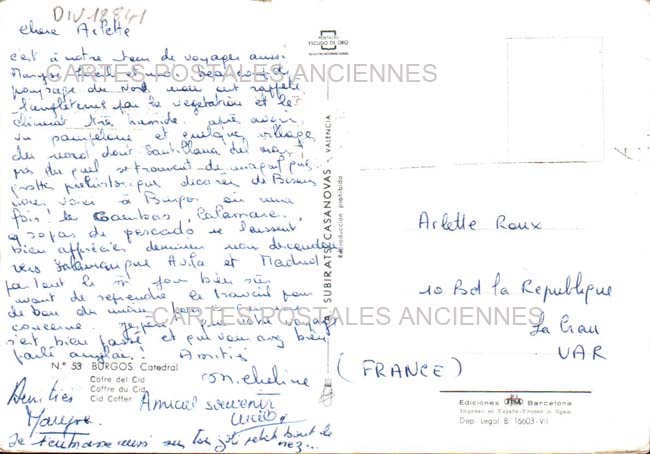 DIV-12841
chere Arlette
c'est à notre tour de voyager aussi
Maryse Cécile et moi beaucoup
paysage du Nord nous ont rappelé
l'angleterre par la vegetation et le
climat très humide. après avoir
vu pampelune et quelques villages
du nord dont Santillana del mar
près du quel se trouvent de magnifiques
grottes préhistoriques décorées de Bisons
nous voici à Burgos où une
fois les Gambas, Calamares,
sopas de pescado se laissent
bien apprécier demain nous descendons
vers Salamanque Avila et Madrid
partout le
avant de reprendre le travail pour
de bon du moins pour
concerne. J'espère que votre voyage
s'est bien passé et que vous avez bien
parlé anglais. Amitiés
Micheline
Amitiés
Amical souvenir
Maryse
Je t'embrasse aussi sur ton joli petit bout de
nez...
CARTES POSTALES ANCIENNES
CARTES POSTALES ANCIENNES
N.º 53 BURGOS. Catedral
Cofre del Cid
Coffre du Cid
Cid Coffer
POSTALES
ESCUDO DE ORO
SUBIRATS CASANOVAS - VALENCIA
Reproducción prohibida
Arlette Roux
10 Bd la République
La Crau
VAR
(FRANCE)
Ediciones Barcelona
Impreso en España-Printed in Spain
Dep. Legal B. 16603-VII